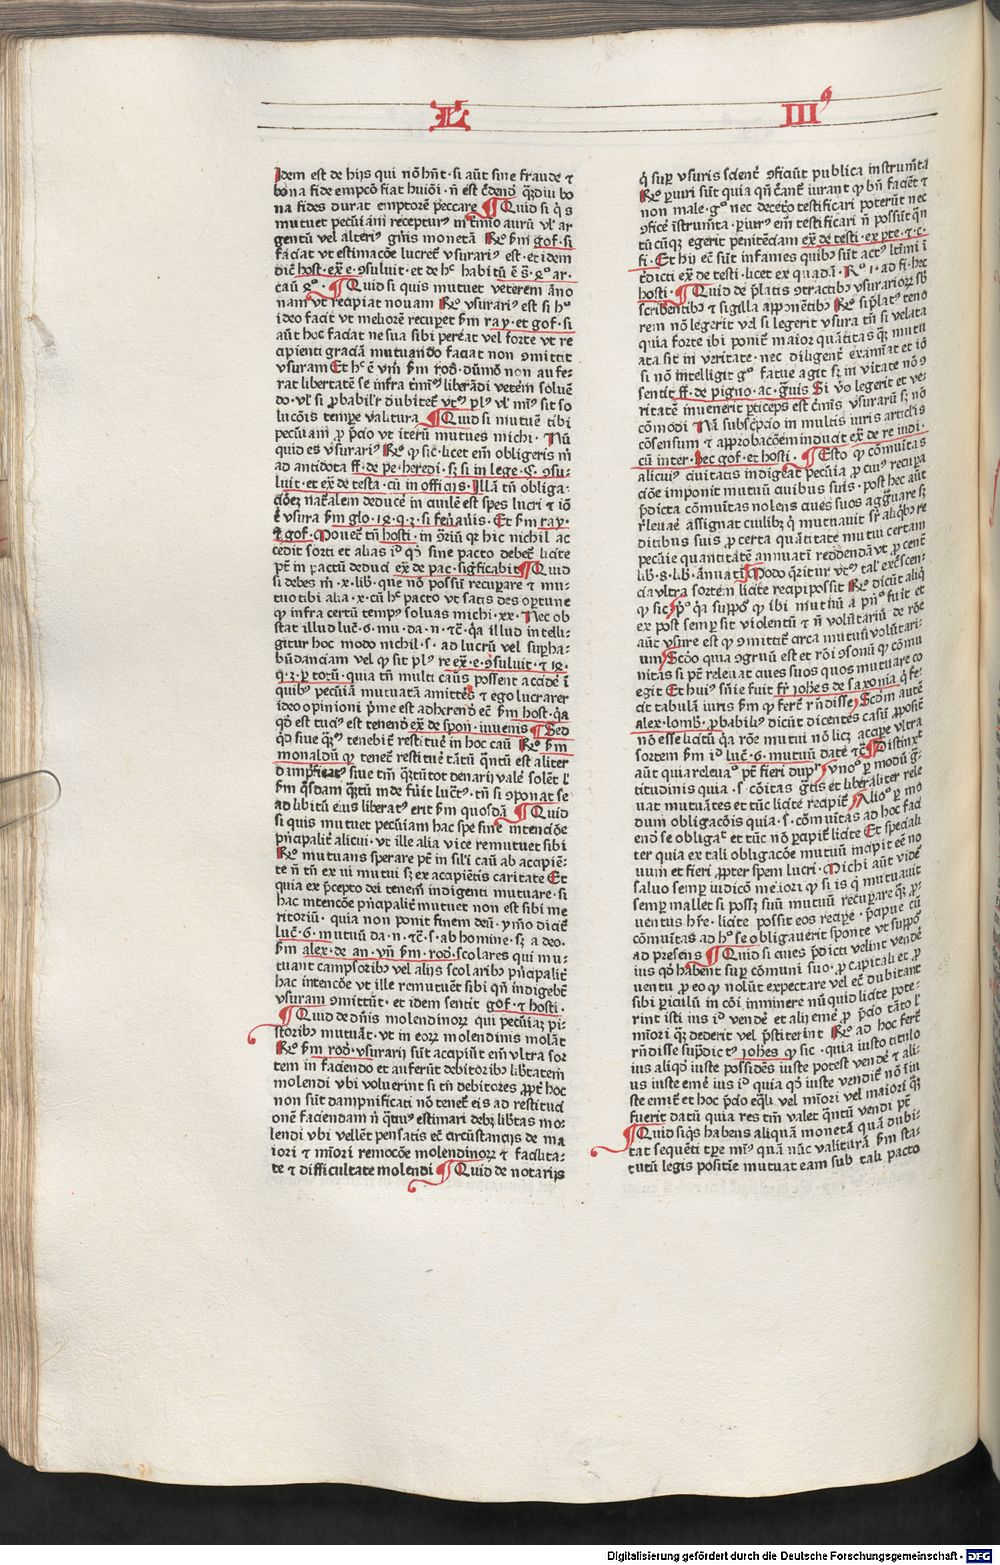 L IIIꝰ
Idem est de hijs qui nō hn̄t · si aūt sine fraude ⁊
bona fide empcō fiat huiōi · n̄ est
na fides durat emptorē peccare ¶ Quid si q̇s
mutuet pecūiam recepturꝰ in t̄mīo aurū vl̓ ar
gentū vel alteriꝰ gn̄is monetā Rō ẜm gof. si
faciat vt estimacōe lucret̉ vsurariꝰ est · et idem
dic̄ host. ex̄ e. ꝯsuluit · et de hͨ habitū ē
¶ Quid si quis mutuet veterem āno
nam vt recipiat nouam Rō vsurariꝰ est si hͦ
ideo facit vt meliorē recuꝑet ẜm ray. et gof. si
aūt hoc faciat ne sua sibi pereāt vel forte vt re
cipienti graciā mutuando faciat non ꝯmittit
vsuram Et hͨ ē vm̄ ẜm rod. dūmō non aufe
rat libertatē se infra t̄mīꝰ liberādi veterī soluē
do · vl̓ si ꝓbabilr̄ dubitet̉ vtꝰ plꝰ vl̓ mīꝰ sit so
lucōis tempe valitura ¶ Quid si mutuē tibi
pecūiam ꝓ p̄cio vt iterū mutues michi · Nū
quid es vsurariꝰ Rō ꝙ sic · licet em̄ obligeris m̄
ad antidota ff. de pe. heredi. sꝫ si in lege. C. ꝯsu-
luit. et ex̄ de testa. cū in officijs. Illa tn̄ obliga-
cōeꝫ nat̉alem deducē in ciuilē est spes lucri ⁊ iō
ē vsura ẜm glo. Et ẜm ray.
⁊ gof. Mouet̉ tn̄ hosti.
cedit sorti et alias iͩ qͦ sine pacto debet̉ licite
pt̄ in pactū deduci ex̄ de pac. sigficabit ¶ Quid
si debes m̄ · x · lib · que nō possū recuꝑare ⁊ mu-
tuo tibi alia · x · cū hͨ pacto vt satis des oꝑtune
ꝙ infra certū tempꝰ soluas michi · xx · Nec ob
stat illud luc̄. 6. mu. da. n. ⁊c̄. q̇a illud intelli-
gitur hoc modo nichil · s · ad lucrū vel suꝑha-
būdanciam vel ꝙ sit plꝰ re ex̄. e. ꝯsuluit. ⁊
quia tn̄ multi casus possent accidē ī
quibꝰ pecūiā mutuatā amittē ⁊ ego lucrarer
ideo opinioni p̄me est adherendū ec̄ ẜm host. q̇a
qͦ est tuciꝰ est tenendū ex̄ de spon. iuuenis ¶ Sed
qͩ siue tenebit̉ restituē in hoc casu Rō ẜm
monaldū ꝙ tenet̉ restituē tātū q̄ntū est aliter
siue tm̄ q̄ntū tot denarij valē solēt l̓
ẜm qͦsdam q̄ntū inde fuit luct̉ꝰ · tn̄ si ꝯponat se
ad libitū eius liberatꝰ erit ẜm quosdā ¶ Quid
si quis mutuet pecūiam hac spe siue intenciōe
p̄ncipalit̉ alicui · vt ille alia vice remutuet sibi
Rō mutuans sperare pt̄ in sil̓i casu ab accipiē-
te n̄ tn̄ ex vi mutui sꝫ ex accipiētis caritate Et
quia ex p̄cepto dei tenem̄ indigenti mutuare · si
hac intencōe p̄ncipalit̉ mutuet non est sibi me
ritoriū · quia non ponit finem deū · ymo dicit̉
luc̄. 6. mutuū da. n. ⁊c̄. s. ab homine. sꝫ a deo.
ẜm alex. de an. vn̄ ẜm. rod. scolares qui mu-
tuant campsoribꝰ vel alijs scolaribꝰ p̄ncipalit̉
hac intencōe vt ille remutuet̉ sibi qn̄ indigebt̉
vsuram ꝯmittūt · et idem sentit gof. ⁊ hosti.
¶ Quid de dn̄is molendinoꝝ qui pecūias pi-
storibꝰ mutuāt · vt in eoꝝ molendinis molāt
Rō ẜm rod. vsurarij sūt accipiūt em̄ vltra sor
tem in faciendo et auferūt debitoribꝰ libtatem
molendi vbi voluerint si tn̄ debitores ꝓpt̓ hoc
non sūt dampnificati nō tenet̉ eis ad restituci
onē faciendam n̄ q̄tuꝰ estimari debꝫ libtas mo-
lendi vbi vellēt pensatis ec̄ circūstancijs de ma
iori ⁊ mīori remocōe molendinoꝝ ⁊ facilita-
te ⁊ difficultate molendi ¶ Quid de notarijs
q̇ suꝑ vsuris scient̉ ꝯficiūt publica instrum̄ta
Rō ꝑiuri sūt quia qn̄ cān̄t̉ iurant ꝙ bn̄ faciēt ⁊
non male · gͦ nec decetͦ testificari poterūt nec
ꝯficē īstrum̄ta · ꝑiurꝰ em̄ testificari n̄ possūt q̄n
tūcūqꝫ egerit penitēciam ex̄ de testi. ex ꝑte. ⁊. c.
fi. Et hij ec̄ sūt infames quibꝰ sūt actꝰ ltīmi ī
t̄dicti ex̄ de testi. licet ex quadā. Rͦ 1. ad fi. hec
hosti. ¶ Quid de p̄latis ꝯtractibꝰ vsurarioꝝ sb̄
scribentibꝰ ⁊ sigilla apponētibꝰ Rō si p̄latꝰ teno
rem nō legerit vel si legerit vsura tn̄ si velata
quia forte ibi ponit̉ maior quātitas q̄ꝫ mutu
ata sit in veritate · nec diligent̉ examīat et iō
si nō intelligit gͦ fatue agit sꝫ in vitate nō ꝯ
sentit ff. de pigno. ac. gͥuis Si vͦo legerit et ve-
ritatē inuenerit ꝑticeps est c̄mīs vsurarū sꝫ nō
cōmodi · Nā subsc̄pcio in multis iuris articlis
cōsensum ⁊ approbacōem inducit ex̄ de re iudi.
cū inter. hec gof. et hosti. ¶ Esto ꝙ cōmuītas
alicuiꝰ ciuitatis indigeat pecūia ꝓ cuiꝰ recuꝑa
ciōe imponit mutuū ciuibus suis · post hec aūt
p̄dicta cōmuītas nolens ciues suos agg̓uare sꝫ
r̓leuare assignat cuilibꝫ q̇ mutuauit
ditibus suis ꝓ certa quātitate mutui certam
pecūie quantitatē annuati reddendā vt ꝓ cent̉
lib · s · lib · ānuati ¶ Modo q̄ritur vtꝰ tal̓ excescen-
cia vltra sortem licite recipi possit Rō dicūt aliq̇
ꝙ sic pͦ q̇a suppōo ꝙ ibi mutuū a p̄nͦ fuit et
ex post semꝑ sit violentū ⁊ n̄ volūtariū de rōe
aūt vsure est ꝙ ꝯmittit̉ circa mutuū volūtari-
um Scd̄o quia ꝯgruū est et rōi ꝯsonū ꝙ cōmu
nitas si pt̄ releuāt ciues suos quos mutuare co
egit Et huiꝰ sn̄ie fuit fr̄ ioh̄es de saxonia q̇ fe-
cit tabulā iuris ẜm ꝙ fert̉ rn̄disse Scd̄m autē
alex. lomb. ꝓbabiliꝰ dicūt dicentes casū ꝓposit̉
nō esse licitū q̇a rōe mutui nō licꝫ acciꝑe vltra
sortem ẜm iͩ luc̄. 6. mutuū date ⁊c̄ ¶ Distinxit̉
aūt quia releuaͦ pt̄ fieri duplr̄ vnoͦ ꝑ modū g̓-
titudinis quia · s · cōitas g̓tis et liberaliter rele
uat mutuātes et tūc licite recipit̉ Alioͦ ꝑ mo
dum obligacōis quia · s · cōmuītas ad hoc faci
end̄ se obligaᵗ et tūc nō ꝑcipit̉ licite Et speciali
ter quia ex tali obligacōe mutuū incipit eē no
uum et fieri ꝓpter spem lucri · Michi aūt vide
saluo semꝑ iudicō meliori ꝙ si is q̇ mutuauit
semꝑ mallet si possꝫ suū mutuū recuꝑare q̄ꝫ ꝓ-
uentus hr̄e · licite possit eos reciꝑe · p̄cipue cū
cōmuītas ad hͦ se obligauerit sponte vt suppōo
ad presens ¶ Quid si ciues p̄dicti velint vendē
ius qͦ habent suꝑ cōmuni suo · ꝓ capitali et ꝓ
uentu ꝓ eo ꝙ nolūt expectare vel ec̄ dubitant
sibi ꝑiculū in cōi imminere nūquid licite pote-
rint isti ius iͩ vendē et alij emē ꝓ p̄cio tāto l̓
mīori q̄ꝫ dederit vel p̄stiterint Rō ad hoc fert̉
rn̄disse sup̄dictꝰ ioh̄es ꝙ sic · quia iusto titulo
ius aliqͦ iuste possidēs iuste potest vendē ⁊ ali-
us iuste emē ius iͩ quia qͦ iuste vendit̉ nō īiu
ste emit̉ et hoc p̄cio eq̇li vel mīori vel maiori q̄ꝫ
fuerit datū quia res tm̄ valet q̄ntū vendi pt̄
¶ Quid si q̇s habens aliquā monetā quā dubi-
tat sequēti tꝑe mīꝰ quā nūc valiturā ẜm sta-
tutū legis positiue mutuat eam sub tali pacto
Digitalisierung gefördert durch die Deutsche Forschungsgemeinschaft - DFG